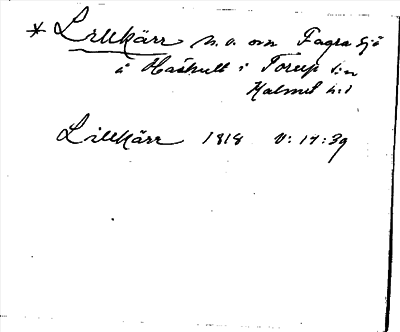 * Lillkärr n.v. om Fagra sjö
å Haskult i Torup s:n
Halmst h:d
Lillkärr 1818 V: 14:39